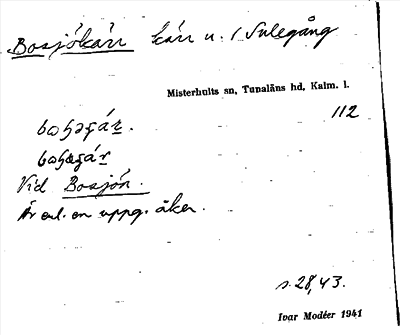 Bosjökärr kärr n. / Sulegång
Misterhults sn, Tunaläns hd, Kalm. l.
112
Vid Bosjön.
Är enl. en uppg. åker.
s. 28, 43.
Ivar Modéer 1941